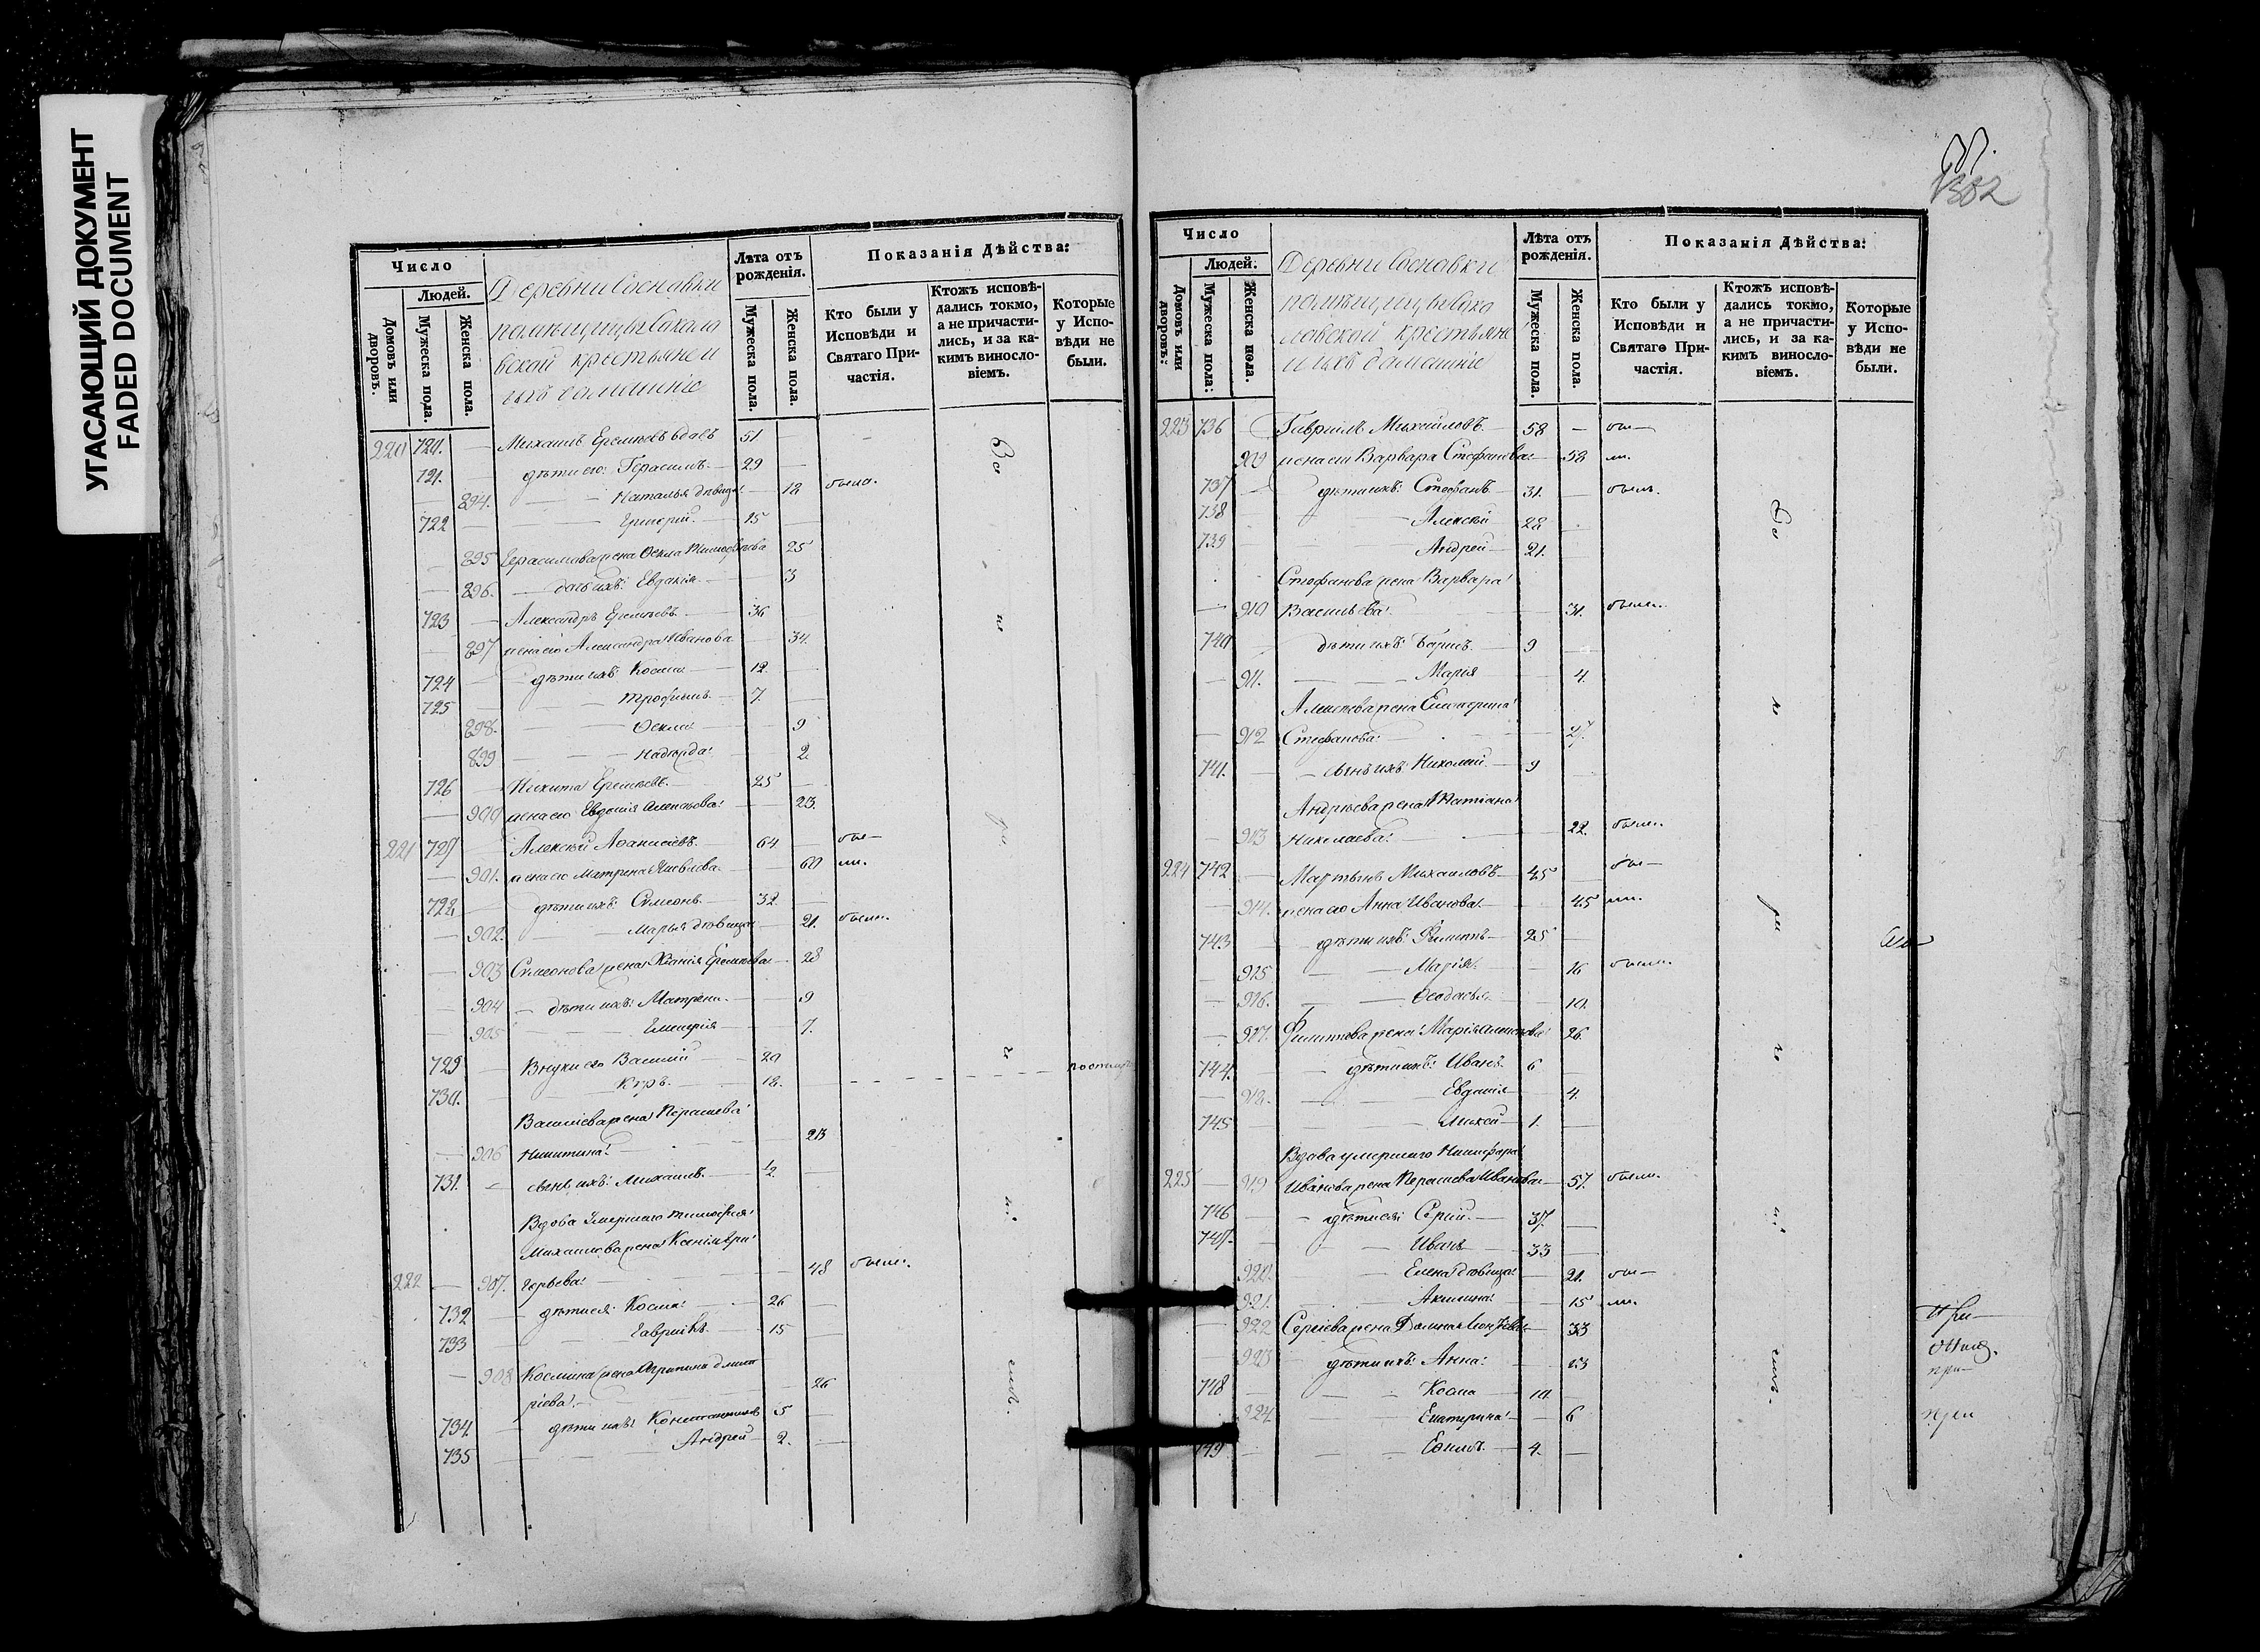 УГАСАЮЩИЙ ДОКУМЕНТ
FADED DOCUMENT
Число
Людей.
Домовъ или дворовъ.
Мужеска пола.
Женска пола.
Деревни Сосновки
помѣщицы Соколо
вской крестьяне и
ихъ домашніе
Лѣта отъ рожденія.
Мужеска пола.
Женска пола.
Показанія Дѣйства:
Кто были у Исповѣди и Святаго Причастія.
Ктожъ исповѣдались токмо, а не причастились, и за какимъ винословіемъ.
Которые у Исповѣди не были.
220 720. — Михаилъ Еремѣевъ вдовъ 51 —
721. дѣти его: Герасимъ — 29 —
894. — Наталья дѣвица — 18 была.
722 — Григорій. — 15 —
895 Герасимова жена Ѳекла Тимоѳеева 25
896. — дочь ихъ: Евдокія — 3
723 — Александръ Еремѣевъ — 36
897 жена его Александра Иванова 34.
724 — дѣти ихъ: Косма — 12. —
725 — Трофимъ — 7. —
898. — Ѳекла — 9
899 — Надежда — 2.
726 — Никита Еремѣевъ. — 25 —
900 жена его Евдокія Алексѣева — 23.
221 727 Алексѣй Аѳанасіевъ. 64 бы—
901. жена его Матрена Яковлева — 60 ли.
728 — дѣти ихъ: Симеонъ — 32 —
902. — Марья дѣвица 21. была.
903 Симеонова жена Ксенія Еремѣева — 28
904 — дѣти ихъ: Матрена. — 9
905 — Гликерія — 7.
729 — Внуки его Василій — 20
730. — Киръ. — 18.
Василіева жена Парасковья
906 Никитина — 23
731. — сынъ ихъ: Михаилъ. — ½. —
Вдова Умершаго Тимоѳея
Михаилова жена
222 — 907. — 48 была.
732 — дѣти ея: Косма — 26 —
733 Гавріилъ. — 15
908 Космина жена Агрипина Дмит
ріева. — 26
734. — дѣти ихъ: Константинъ 5 —
735 — Андрей — 2. —
Во
се
ло
882
Число
Людей.
Домовъ или дворовъ:
Мужеска пола:
Женска пола.
Деревни Сосновки
помѣщицы Соко
ловской крестьяне
и ихъ домашніе
Лѣта отъ рожденія.
Мужеска пола.
Женска пола.
Показанія Дѣйства:
Кто были у Исповѣди и Святаго Причастія.
Ктожъ исповѣдались токмо, а не причастились, и за какимъ винословіемъ.
Которые у Исповѣди не были.
223 736 Гавріилъ Михаиловъ — 58 — бы—
909 жена его Варвара Стефанова — 58 ли.
737 — дѣти ихъ: Стефанъ 31. — былъ.
738 Алексѣй — 28
739 Андрей — 21.
Стефанова жена Варвара
910 Васильева — 31. была.
740 дѣти ихъ: Борисъ. — 9
911. — Марія 4.
Алексѣева жена Екатерина
912 Стефанова — 27.
741. — сынъ ихъ: Николай. — 9
Андрѣева жена Татіана
913 Николаева — 22. была.
224 742 Мартынъ Михаиловъ — 45 бы—
914. жена его Анна Иванова — 45 ли.
743 — дѣти ихъ: Филиппъ — 25 —
915 — Марія — 16 была.
916. — Ѳеодосья 10.
917. Филиппова жена Марія Алексѣева 26.
744. — дѣти ихъ: Иванъ 6
918. — Евдокія 4.
745 — 1. —
Вдова умершаго Никифора
225 — 919 Иванова жена Парасковья Иванова — 57. была.
746 — дѣти ея: Сергій. — 37. —
747. — Иванъ 33 —
920. — Елена дѣвица — 21. бы—
921. — Акилина — 15 ли.
922 Сергіева жена Домна Леонтіева 33
923 дѣти ихъ: Анна: 13
748 — Косма — 10.
924. Екатерина — 6
749 — Евѳимъ. — 4. —